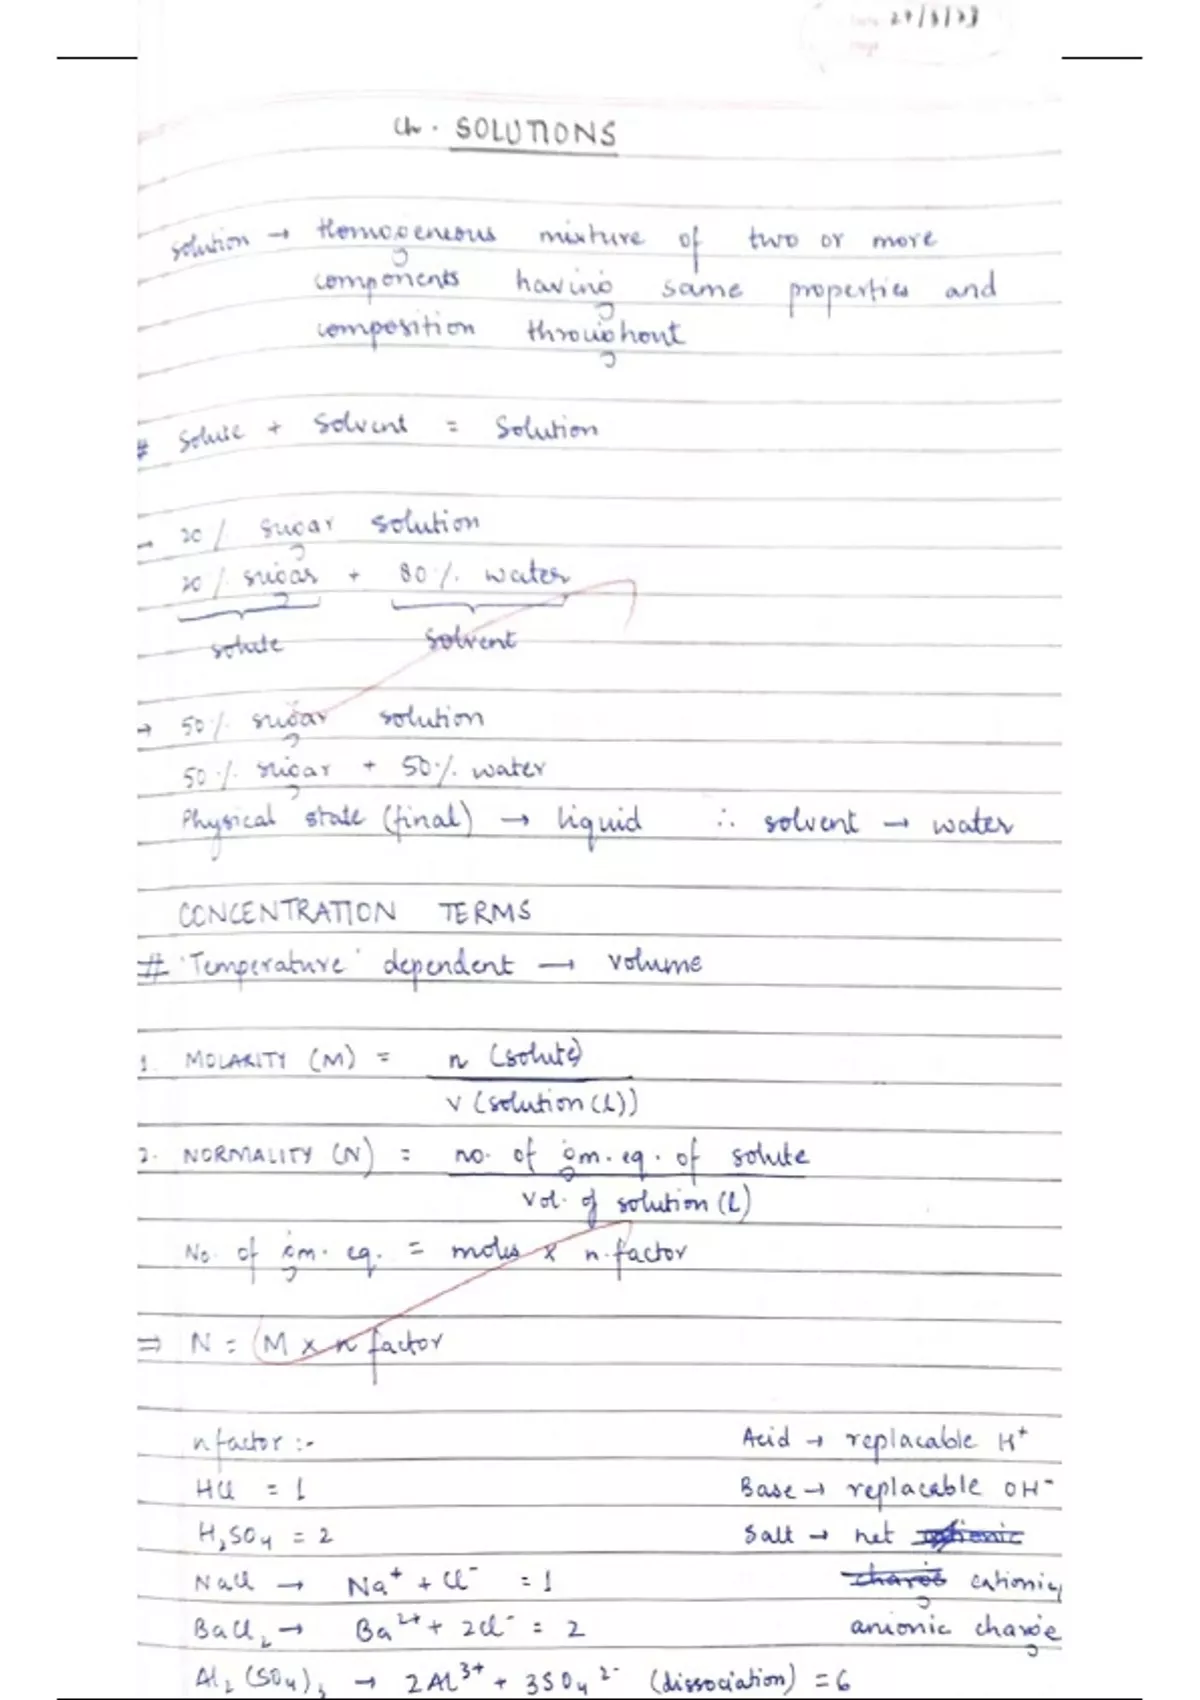 27/3/23
Ch. SOLUTIONS
Solution → Homogeneous mixture of two or more
components having same properties and
composition throughout
# Solute + Solvent = Solution
→ 20 % sugar solution
20 % sugar + 80 % water
solute solvent
→ 50 % sugar solution
50 % sugar + 50 % water
Physical state (final) → liquid ∴ solvent → water
CONCENTRATION TERMS
# 'Temperature' dependent → volume
1. MOLARITY (M) = n (solute)
V (solution (L))
2. NORMALITY (N) = no. of gm. eq. of solute
Vol. of solution (L)
No. of gm. eq. = moles × n.factor
⇒ N = M × n factor
n factor :- Acid → replacable H⁺
HCl = 1 Base → replacable OH⁻
H₂SO₄ = 2 Salt → net
NaCl → Na⁺ + Cl⁻ = 1 charge cationic/
BaCl₂ → Ba²⁺ + 2Cl⁻ = 2 anionic charge
Al₂(SO₄)₃ → 2Al³⁺ + 3SO₄²⁻ (dissociation) = 6